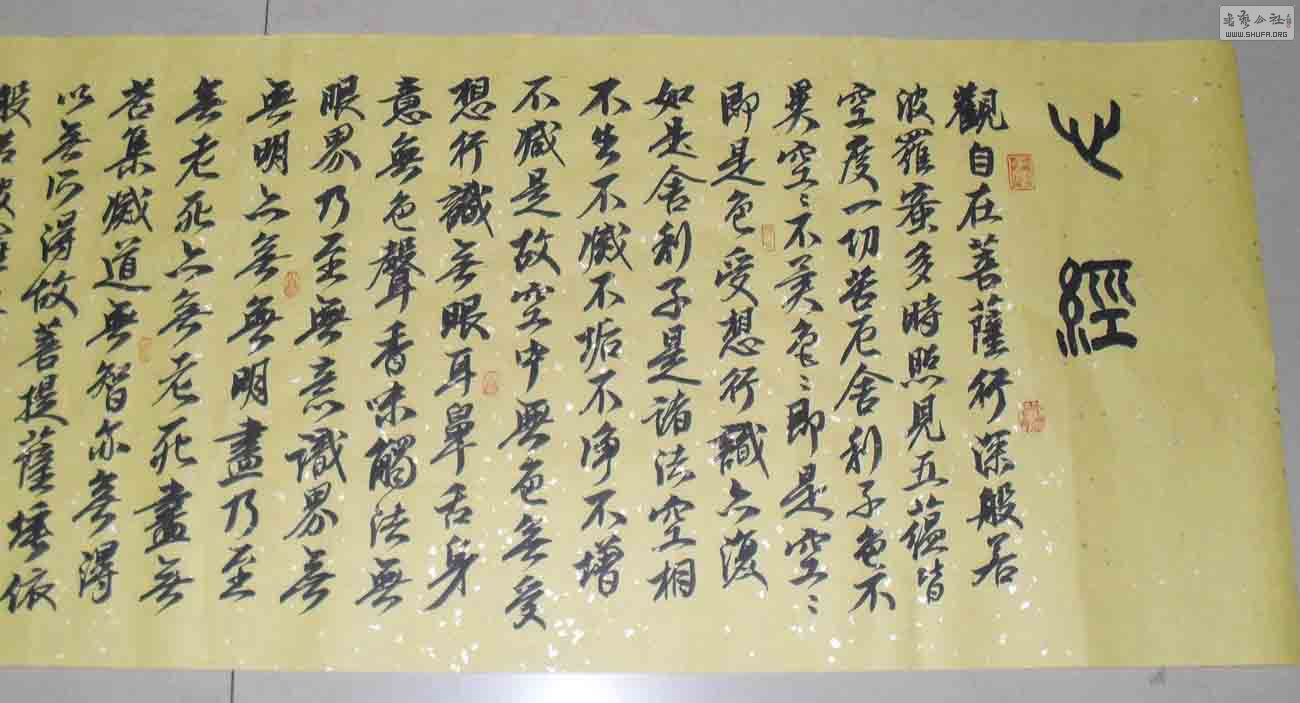 心經
觀自在菩薩行深般若
波羅蜜多時照見五蘊皆
空度一切苦厄舍利子色不
異空〻不異色〻即是空〻
即是色受想行識亦復
如是舍利子是諸法空相
不生不滅不垢不淨不增
不減是故空中無色無受
想行識無眼耳鼻舌身
意無色聲香味觸法無
眼界乃至無意識界無
無明亦無無明盡乃至
無老死亦無老死盡無
苦集滅道無智亦無得
以無所得故菩提薩埵依
般若波
WWW.SHUFA.ORG